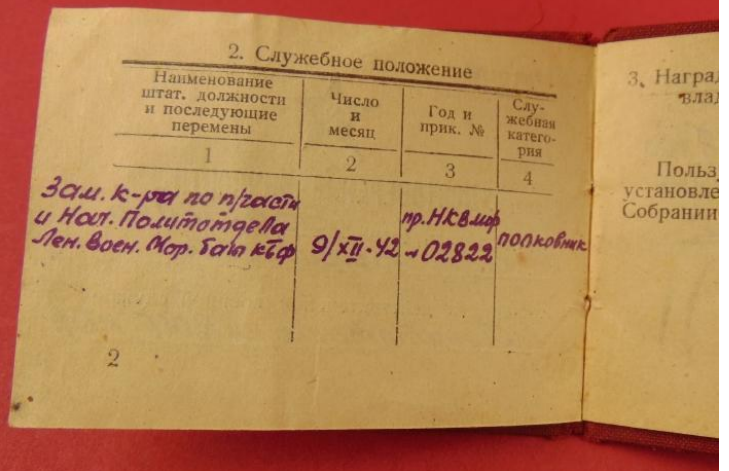 2. Служебное положение
Наименование
штат. должности
и последующие
перемены
Число
и
месяц
Год и
прик. №
Слу-
жебная
катего-
рия
1
2
3
4
Зам. к-ра по п/части
и Нач. Политотдела
Лен. Воен. Мор. базы КБФ
9/XII-42
пр. НКВМФ
02822
полковник
2
3. Наград
влад
Польз
установле
Собрании